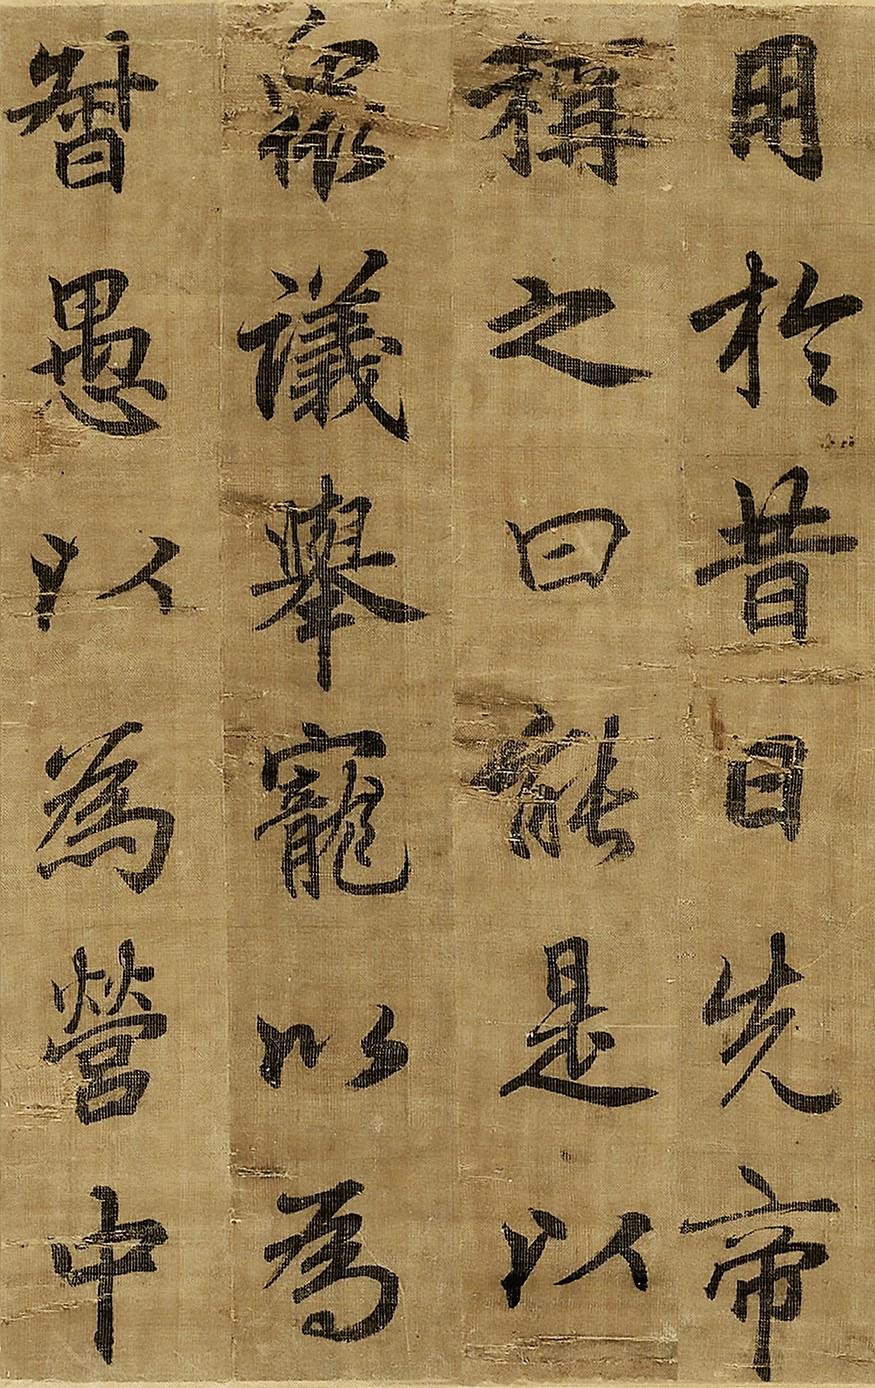 用於昔日先帝
稱之曰能是以
衆議舉寵以為
督愚以為營中